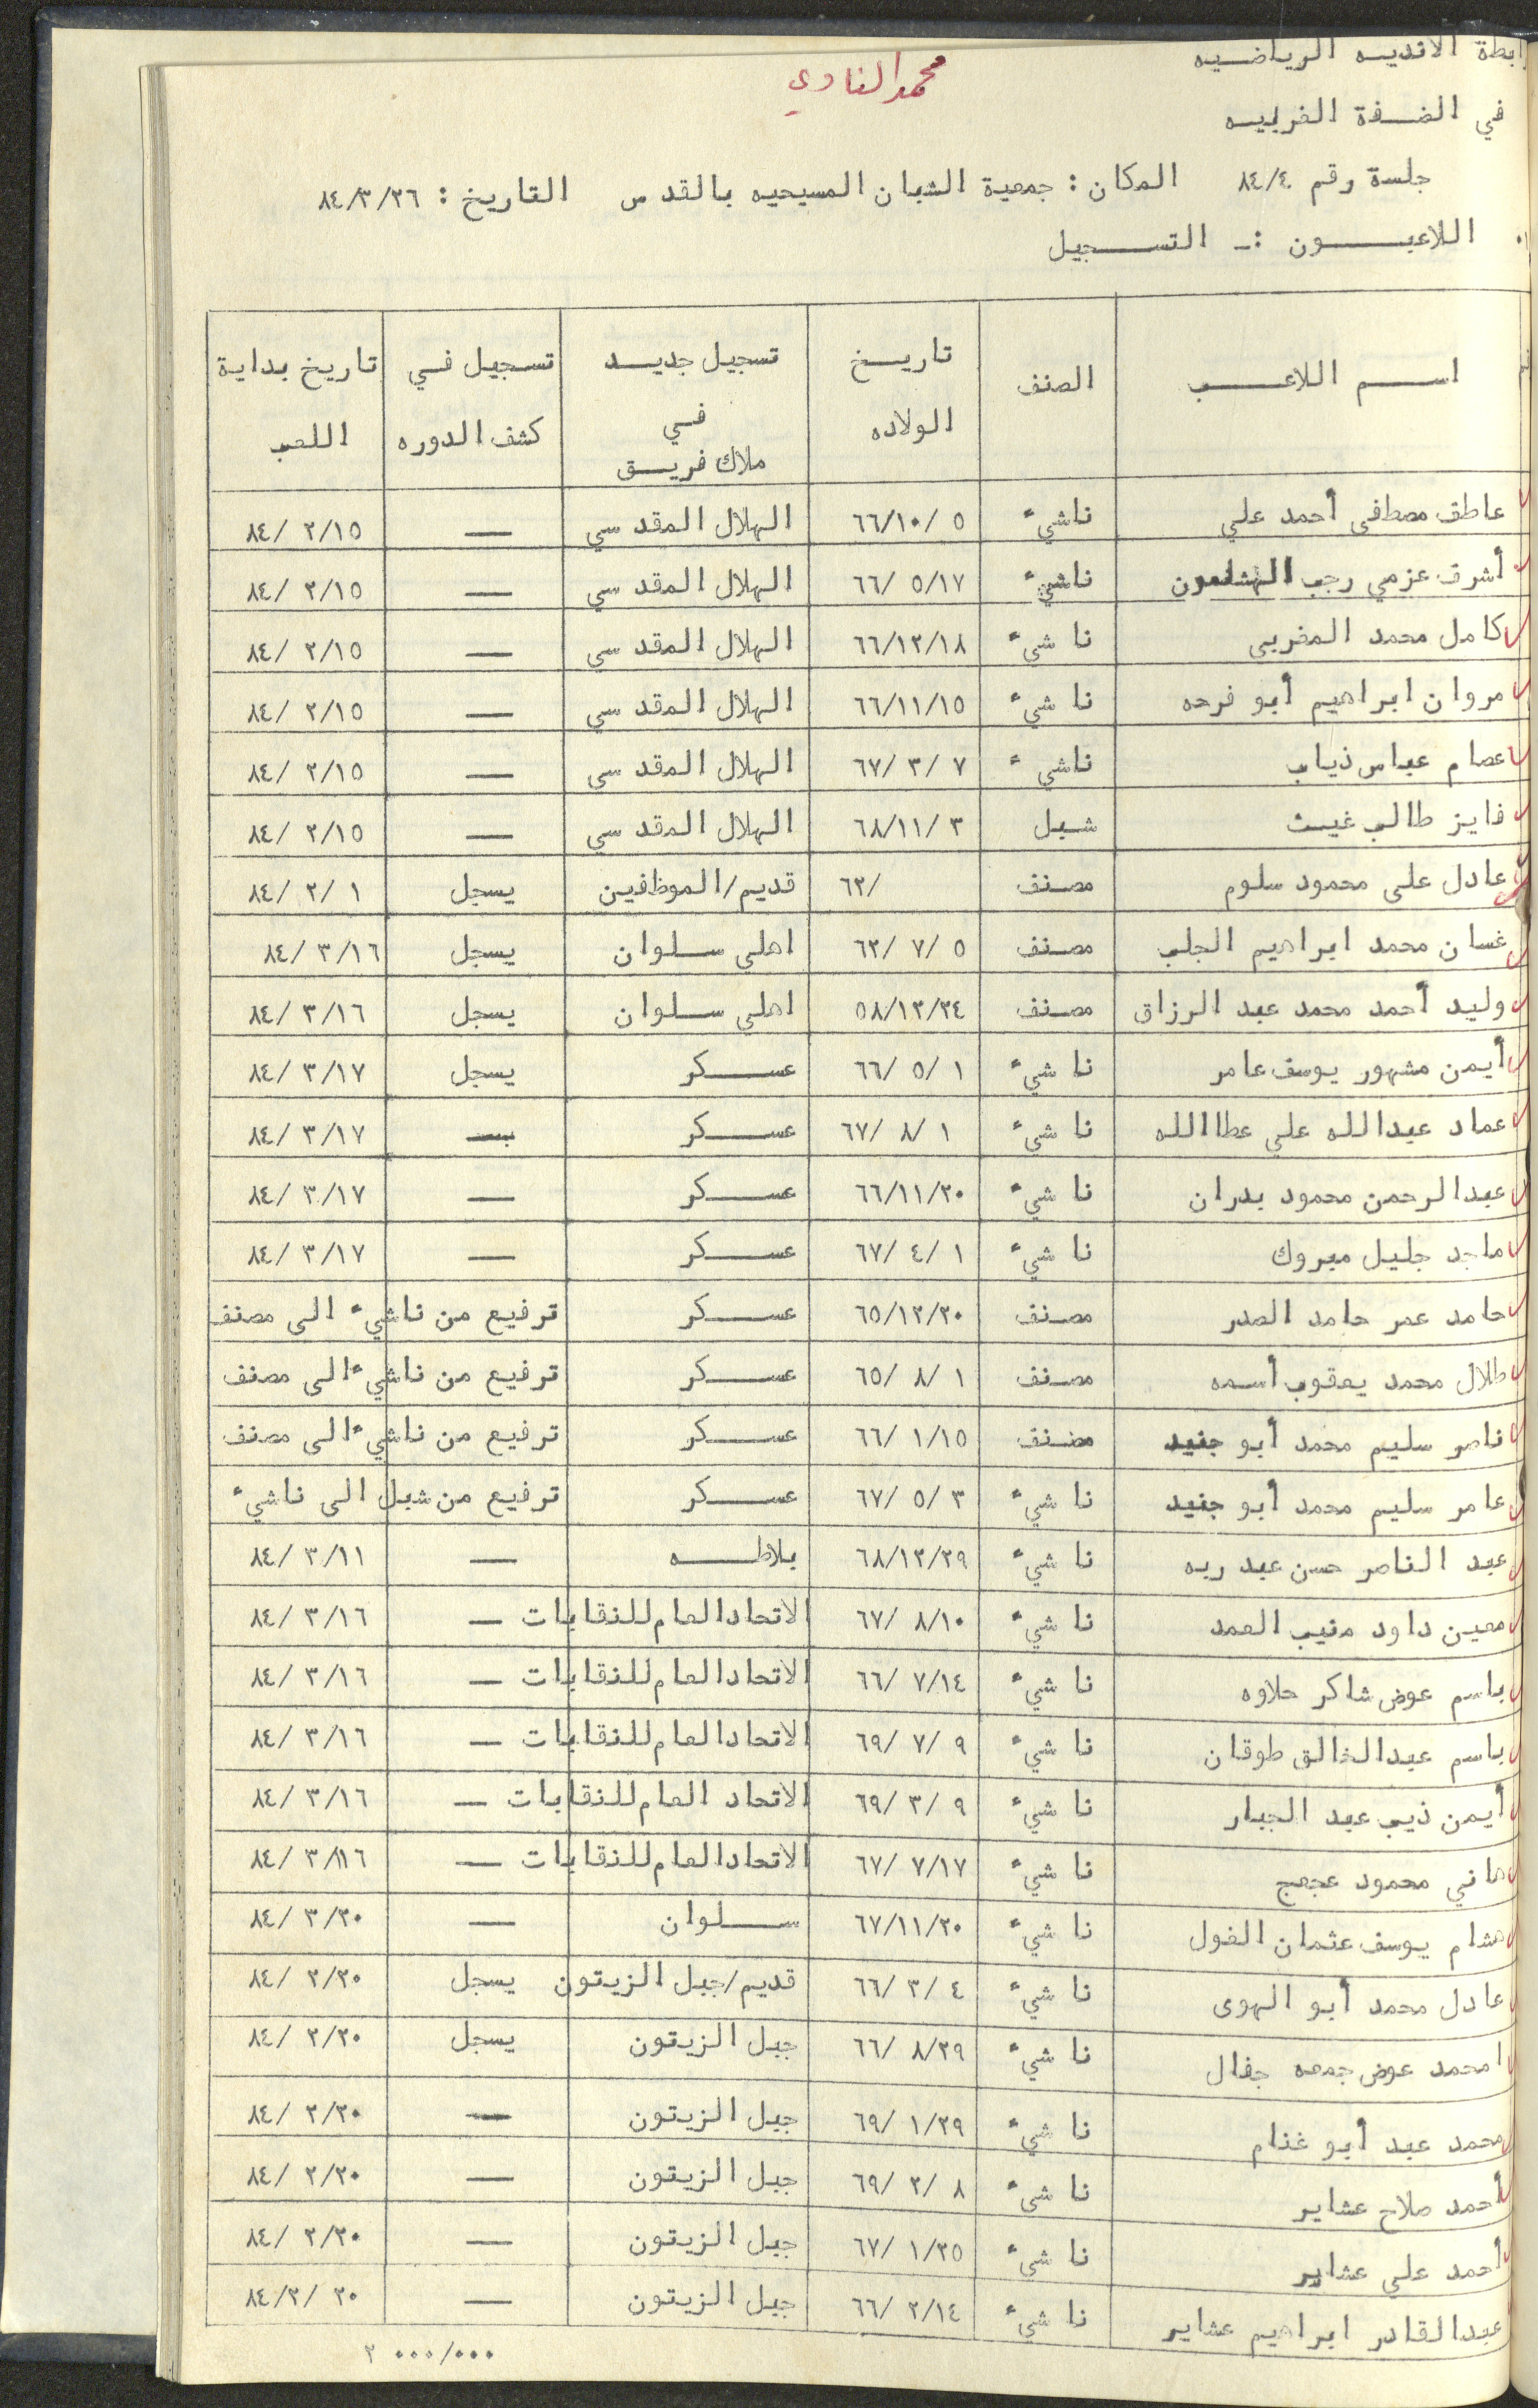 رابطة الانديه الرياضيه
محمد النادي
في الضفة الغربيه
جلسة رقم ٨٤/٤ المكان : جمعية الشبان المسيحيه بالقدس التاريخ : ٨٤/٣/٢٦
٠١ اللاعبون :ـ التسجيل
اسم اللاعب | الصنف | تاريخ الولاده | تسجيل جديد في ملاك فريق | تسجيل في كشف الدوره | تاريخ بداية اللعب
عاطف مصطفى أحمد علي | ناشيء | ٥ /٦٦/١٠ | الهلال المقدسي | — | ٢/١٥ /٨٤
أشرف عزمي رجب | ناشيء | ٥/١٧ /٦٦ | الهلال المقدسي | — | ٢/١٥ /٨٤
كامل محمد المغربي | ناشيء | ٦٦/١٢/١٨ | الهلال المقدسي | — | ٢/١٥ /٨٤
مروان ابراهيم أبو فرحه | ناشيء | ٦٦/١١/١٥ | الهلال المقدسي | — | ٢/١٥ /٨٤
عصام عباس ذياب | ناشيء | ٧ /٣ /٦٧ | الهلال المقدسي | — | ٢/١٥ /٨٤
فايز طالب غيث | شبل | ٣ /٦٨/١١ | الهلال المقدسي | — | ٢/١٥ /٨٤
عادل علي محمود سلوم | مصنف | /٦٢ | قديم/الموظفين | يسجل | ١ /٢ /٨٤
غسان محمد ابراهيم الجلب | مصنف | ٥ /٧ /٦٢ | اهلي سلوان | يسجل | ٣/١٦ /٨٤
وليد أحمد محمد عبد الرزاق | مصنف | ٥٨/١٢/٢٤ | اهلي سلوان | يسجل | ٣/١٦ /٨٤
أيمن مشهور يوسف عامر | ناشيء | ١ /٥ /٦٦ | عسكر | يسجل | ٣/١٧ /٨٤
عماد عبدالله علي عطاالله | ناشيء | ١ /٨ /٦٧ | عسكر | — | ٣/١٧ /٨٤
عبدالرحمن محمود بدران | ناشيء | ٦٦/١١/٢٠ | عسكر | — | ٣/١٧ /٨٤
ماجد جليل مبروك | ناشيء | ١ /٤ /٦٧ | عسكر | — | ٣/١٧ /٨٤
حامد عمر حامد الصدر | مصنف | ٦٥/١٢/٢٠ | عسكر | ترفيع من ناشيء الى مصنف
طلال محمد يعقوب أسمه | مصنف | ١ /٨ /٦٥ | عسكر | ترفيع من ناشيء الى مصنف
ناصر سليم محمد أبو جنيد | مصنف | ١/١٥ /٦٦ | عسكر | ترفيع من ناشيء الى مصنف
عامر سليم محمد أبو جنيد | ناشيء | ٣ /٥ /٦٧ | عسكر | ترفيع من شبل الى ناشيء
عبد الناصر حسن عبد ربه | ناشيء | ٦٨/١٢/٢٩ | بلاطه | — | ٣/١١ /٨٤
معين داود منيب العمد | ناشيء | ٨/١٠ /٦٧ | الاتحادالعام للنقابات | — | ٣/١٦ /٨٤
باسم عوض شاكر حلاوه | ناشيء | ٧/١٤ /٦٦ | الاتحادالعام للنقابات | — | ٣/١٦ /٨٤
باسم عبدالخالق طوقان | ناشيء | ٩ /٧ /٦٩ | الاتحادالعام للنقابات | — | ٣/١٦ /٨٤
أيمن ذيب عبد الجبار | ناشيء | ٩ /٣ /٦٩ | الاتحاد العام للنقابات | — | ٣/١٦ /٨٤
هاني محمود عجعج | ناشيء | ٧/١٧ /٦٧ | الاتحادالعام للنقابات | — | ٣/١٦ /٨٤
هشام يوسف عثمان الغول | ناشيء | ٦٧/١١/٢٠ | سلوان | — | ٣/٢٠ /٨٤
عادل محمد أبو الهوى | ناشيء | ٤ /٣ /٦٦ | قديم/جبل الزيتون | يسجل | ٢/٢٠ /٨٤
امحمد عوض جمعه جفال | ناشيء | ٨/٢٩ /٦٦ | جبل الزيتون | يسجل | ٢/٢٠ /٨٤
محمد عبد أبو غنام | ناشيء | ١/٢٩ /٦٩ | جبل الزيتون | — | ٢/٢٠ /٨٤
أحمد صلاح عشاير | ناشيء | ٨ /٢ /٦٩ | جبل الزيتون | — | ٢/٢٠ /٨٤
أحمد علي عشاير | ناشيء | ١/٢٥ /٦٧ | جبل الزيتون | — | ٢/٢٠ /٨٤
عبدالقادر ابراهيم عشاير | ناشيء | ٢/١٤ /٦٦ | جبل الزيتون | — | ٢٠ /٨٤/٢
٢ ٠٠٠/٠٠٠